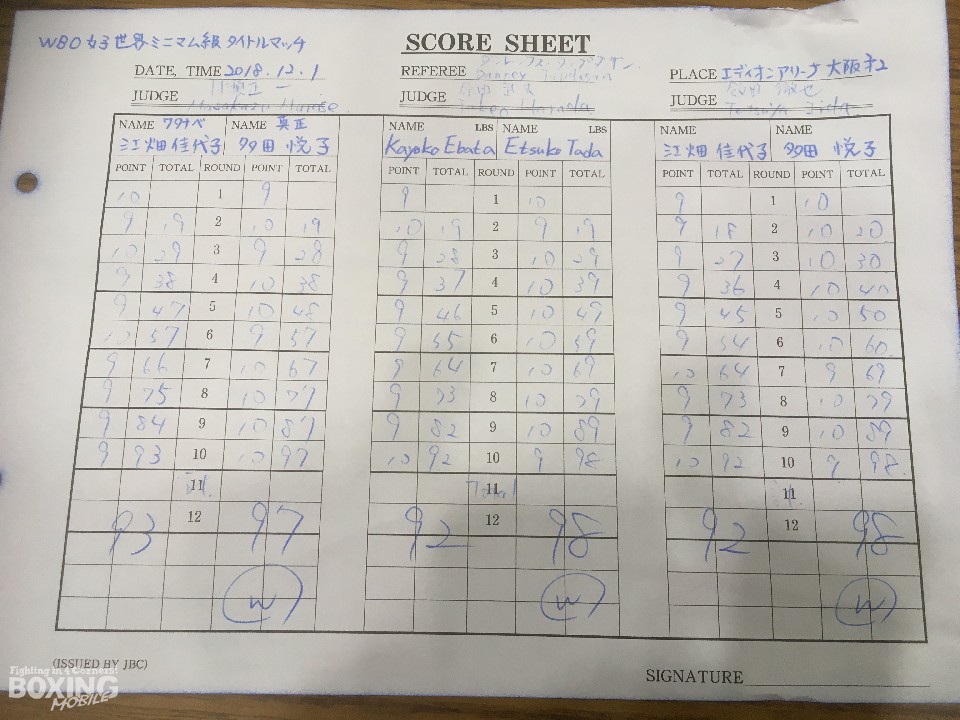 WBO 女子世界ミニマム級 タイトルマッチ
SCORE SHEET
DATE, TIME 2018.12.1
REFEREE
PLACE エディオンアリーナ 大阪 オ2
JUDGE
JUDGE
JUDGE
NAME ワタナベ NAME 真正 NAME LBS NAME LBS NAME NAME
江畑 佳代子 多田 悦子 Kayoko Ebata Etsuko Tada 江畑 佳代子 多田 悦子
POINT TOTAL ROUND POINT TOTAL POINT TOTAL ROUND POINT TOTAL POINT TOTAL ROUND POINT TOTAL
10 1 9 9 1 10 9 1 10
9 19 2 10 19 10 19 2 9 19 9 18 2 10 20
10 29 3 9 28 9 28 3 10 29 9 27 3 10 30
9 38 4 10 38 9 37 4 10 39 9 36 4 10 40
9 47 5 10 48 9 46 5 10 49 9 45 5 10 50
10 57 6 9 57 9 55 6 10 59 9 54 6 10 60
9 66 7 10 67 9 64 7 10 69 10 64 7 9 69
9 75 8 10 77 9 73 8 10 79 9 73 8 10 79
9 84 9 10 87 9 82 9 10 89 9 82 9 10 89
9 93 10 10 97 10 92 10 9 98 10 92 10 9 98
11 11 11
93 12 97 92 12 98 92 12 98
W W W
(ISSUED BY JBC)
SIGNATURE
Fighting in 4 Corners!
BOXING
MOBILE